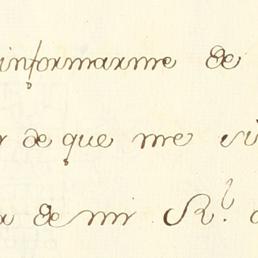 informarme de
de que me
de mi R.l